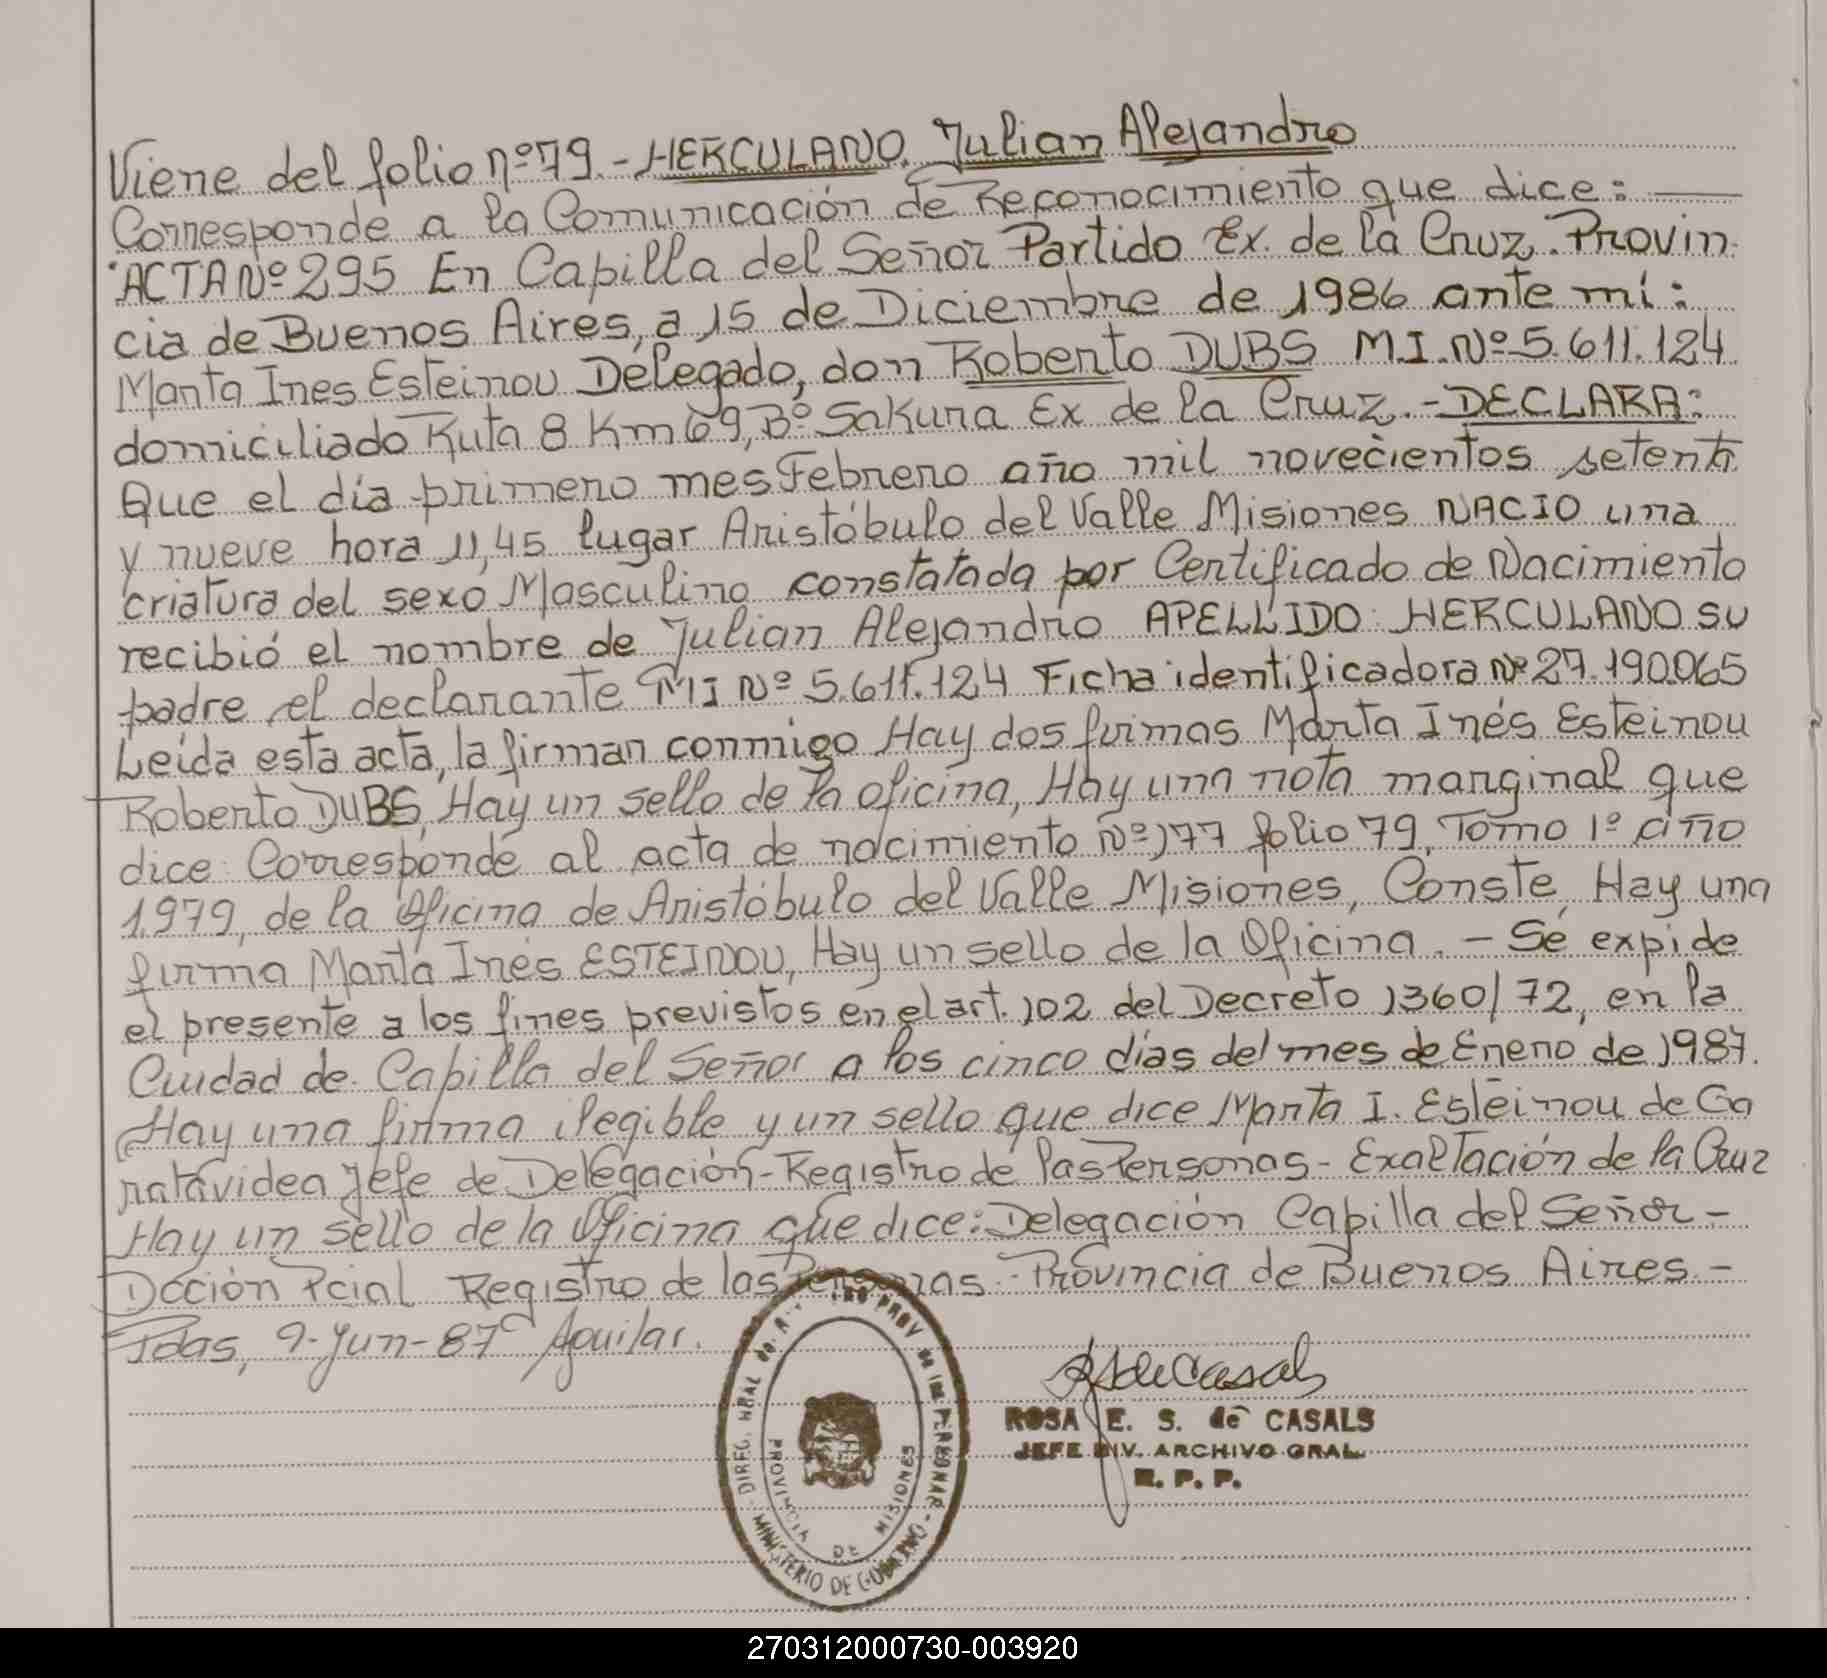 Viene del folio nº 79.- HERCULANO, Julian Alejandro
Corresponde a la Comunicación de Reconocimiento que dice:
"ACTA Nº 295 En Capilla del Señor Partido Ex. de la Cruz. Provin-
cia de Buenos Aires, a 15 de Diciembre de 1986 ante mí:
Marta Ines Esteinou Delegado, don Roberto DUBS M.I. Nº 5.611.124
domiciliado Ruta 8 Km 69, Bº Sakura Ex de la Cruz.- DECLARA:
Que el día primero mes Febrero año mil novecientos setenta
y nueve hora 11,45 lugar Aristóbulo del Valle Misiones NACIO una
criatura del sexo Masculino constatada por Certificado de Nacimiento
recibió el nombre de Julian Alejandro APELLIDO: HERCULANO su
padre el declarante MI Nº 5.611.124 Ficha identificadora Nº 27.190.065
Leída esta acta, la firman conmigo Hay dos firmas Marta Inés Esteinou
Roberto DUBS, Hay un sello de la oficina, Hay una nota marginal que
dice: Corresponde al acta de nacimiento Nº 177 folio 79, Tomo 1º año
1.979, de la Oficina de Aristóbulo del Valle Misiones, Conste, Hay una
firma Marta Inés ESTEINOU, Hay un sello de la Oficina.- Se expide
el presente a los fines previstos en el art. 102 del Decreto 1360/72, en la
Ciudad de Capilla del Señor a los cinco días del mes de Enero de 1987.
Hay una firma ilegible y un sello que dice Marta I. Esteinou de Ga
ratavidea Jefe de Delegación-Registro de las Personas- Exaltación de la Cruz
Hay un sello de la Oficina que dice: Delegación Capilla del Señor-
Dcción Pcial Registro de las Personas.- Provincia de Buenos Aires.-
Pdas, 9-Jun-87 Aguilar.
RdeCasals
ROSA E. S. de CASALS
JEFE DIV. ARCHIVO GRAL.
R. P. P.
DIREG. GRAL de PROV de las PERSONAS
PROVINCIA DE MISIONES
MINISTERIO DE GOBIERNO
270312000730-003920